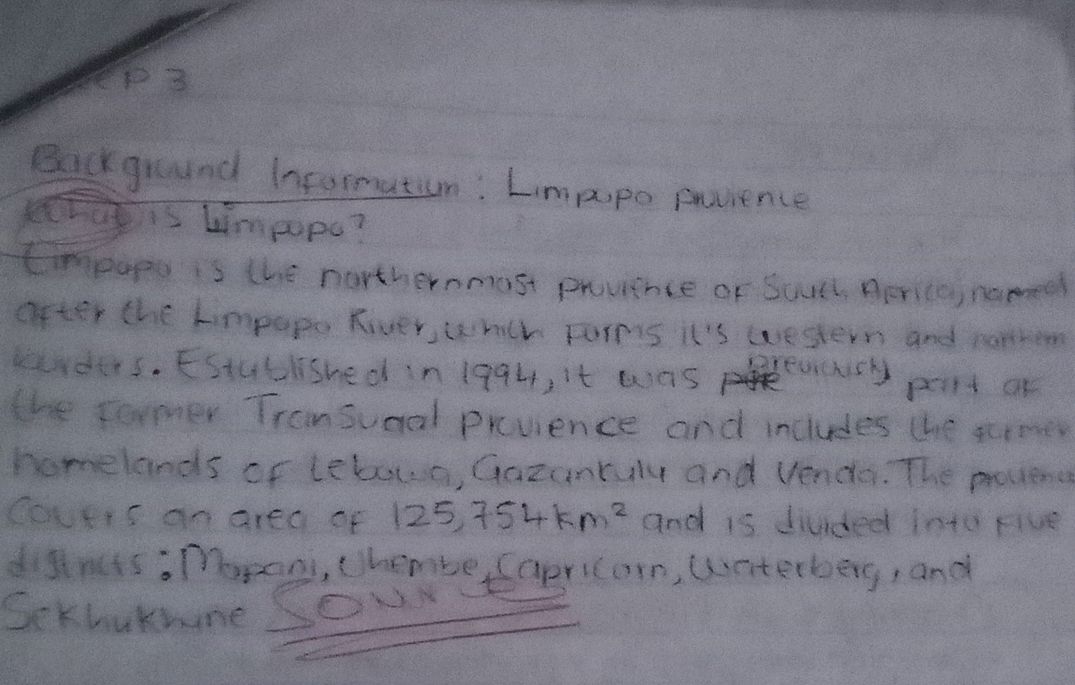 EP 3
Background Information: Limpopo Provience
What is Limpopo?
Limpopo is the northernmost provience of South Africa, named
after the Limpopo River, which forms it's western and northern
borders. Established in 1994, it was previously part of
the former Transvaal provience and includes the former
homelands of Lebowa, Gazankulu and Venda. The provience
Covers an area of 125,754 km² and is divided into five
districts: Mopani, Vhembe, Capricorn, Waterberg, and
Sekhukhune